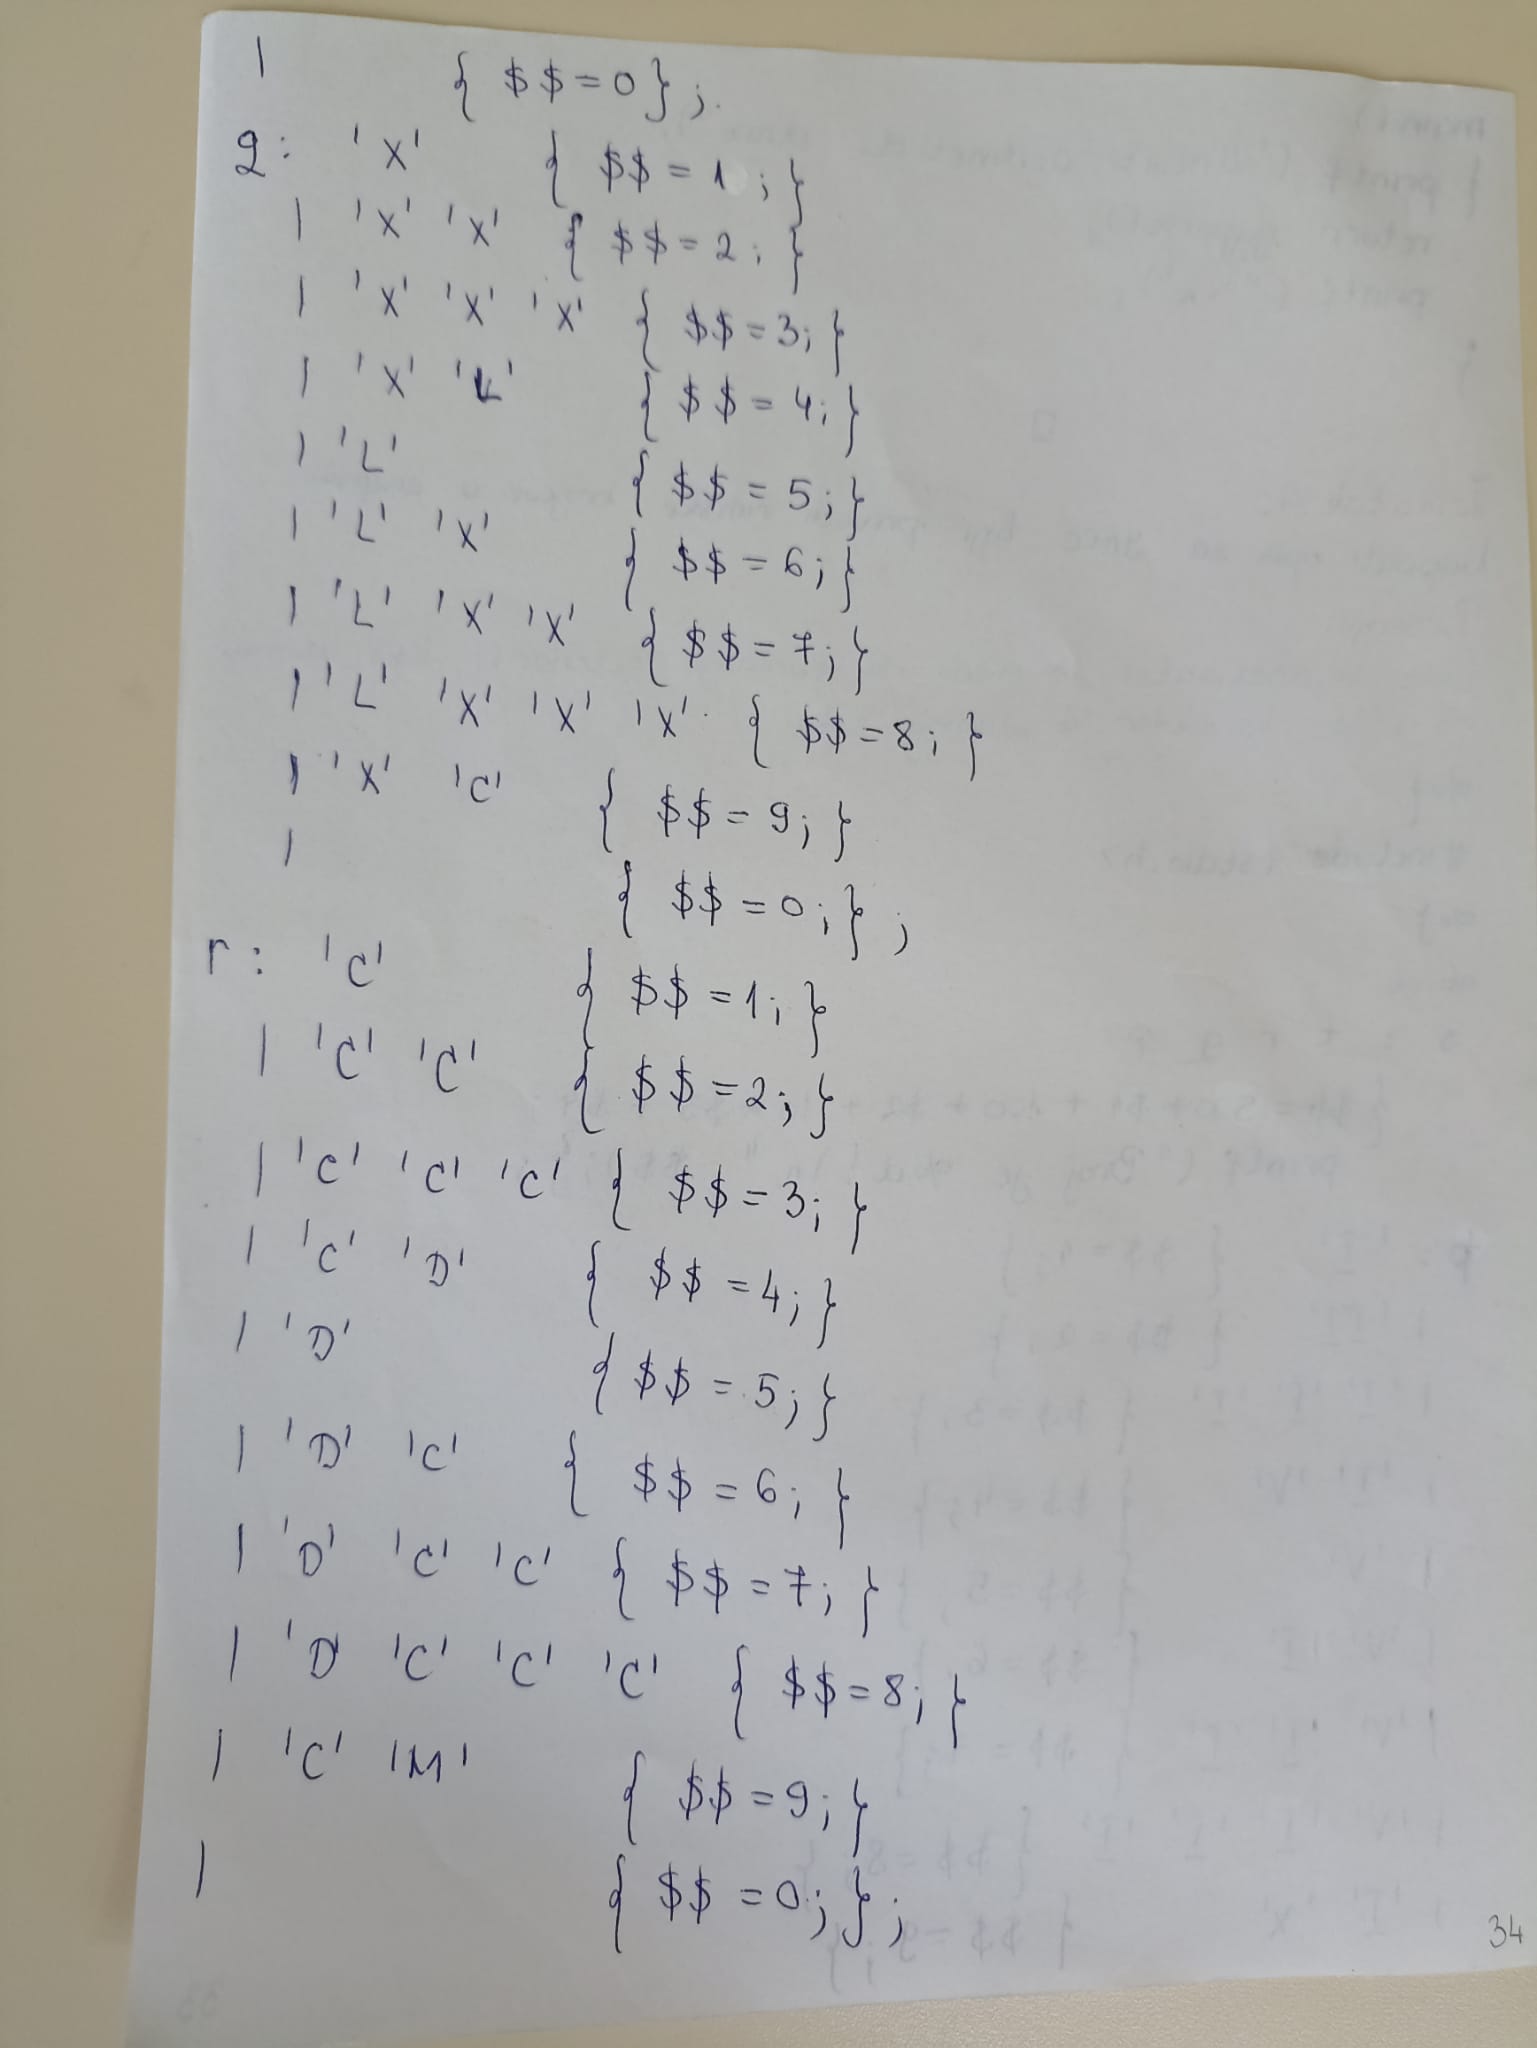 | { $$=0};
q: 'X' { $$=1;}
| 'X' 'X' { $$=2;}
| 'X' 'X' 'X' { $$=3;}
| 'X' 'L' { $$=4;}
| 'L' { $$=5;}
| 'L' 'X' { $$=6;}
| 'L' 'X' 'X' { $$=7;}
| 'L' 'X' 'X' 'X' { $$=8;}
| 'X' 'C' { $$=9;}
| { $$=0;};
r: 'C' { $$=1;}
| 'C' 'C' { $$=2;}
| 'C' 'C' 'C' { $$=3;}
| 'C' 'D' { $$=4;}
| 'D' { $$=5;}
| 'D' 'C' { $$=6;}
| 'D' 'C' 'C' { $$=7;}
| 'D' 'C' 'C' 'C' { $$=8;}
| 'C' 'M' { $$=9;}
| { $$=0;};
34